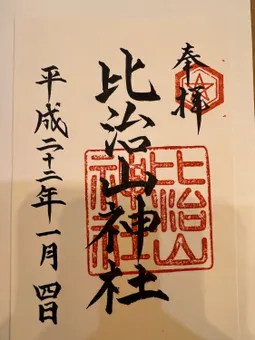 奉拝
比治山神社
比治山神社
平成二十二年一月四日